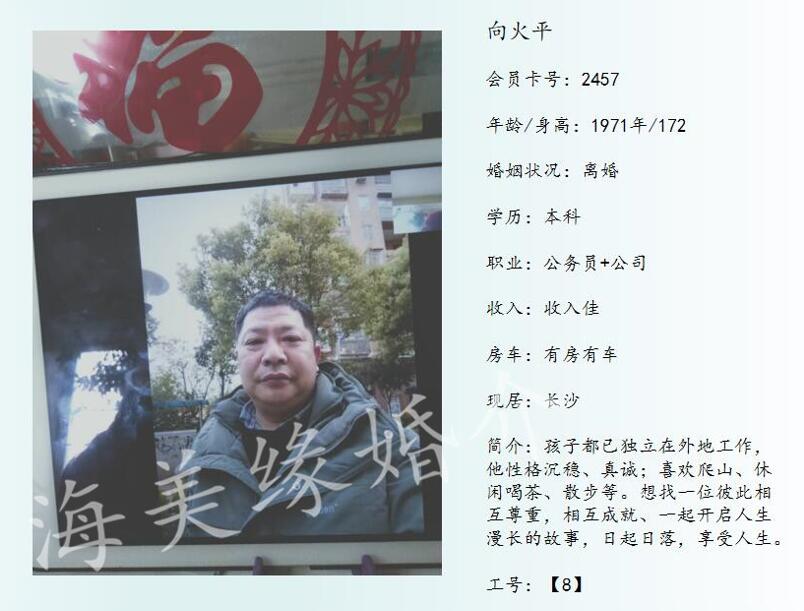 向火平
会员卡号：2457
年龄/身高：1971年/172
婚姻状况：离婚
学历：本科
职业：公务员+公司
收入：收入佳
房车：有房有车
现居：长沙
简介：孩子都已独立在外地工作，
他性格沉稳、真诚；喜欢爬山、休
闲喝茶、散步等。想找一位彼此相
互尊重，相互成就、一起开启人生
漫长的故事，日起日落，享受人生。
工号：【8】
福
海美缘婚介